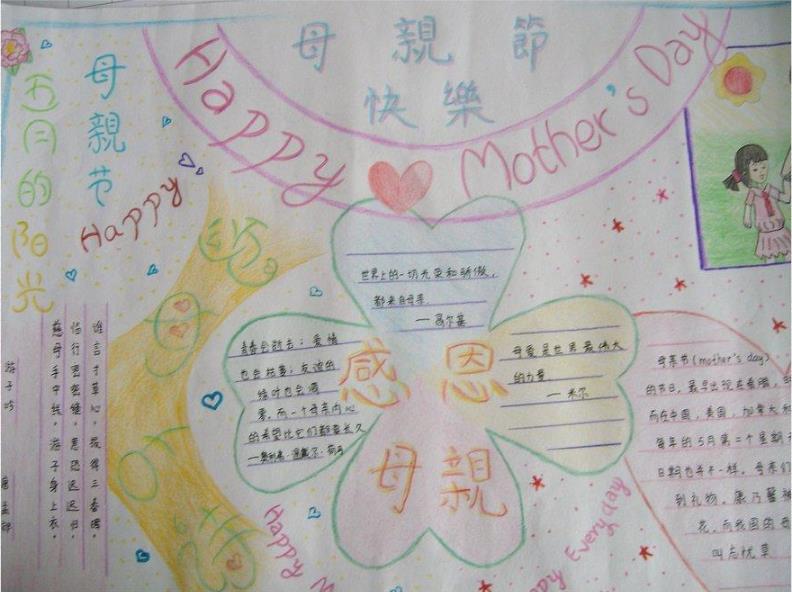 母親節
快樂
Happy Mother's Day
五月的阳光
母親节
Happy
世界上的一切光荣和骄傲，
都来自母亲
—高尔基
青春会逝去；爱情
也会枯萎；友谊的
绿叶也会凋
零。而一个母亲内心
的希望比它们都要长久
—奥利弗·温戴尔·荷马
感恩
母親
母爱是世界最伟大
的力量
—米尔
游子吟
慈母手中线，游子身上衣。
临行密密缝，意恐迟迟归。
谁言寸草心，报得三春晖。
母亲节(mother's day)
的节日，最早出现在希腊，
而在中国，美国，加拿大和
每年的5月第二个星期天
日期也并不一样。母亲们
到礼物，康乃馨被
花，而我国的母
叫忘忧草
Happy M
ppy Everyday